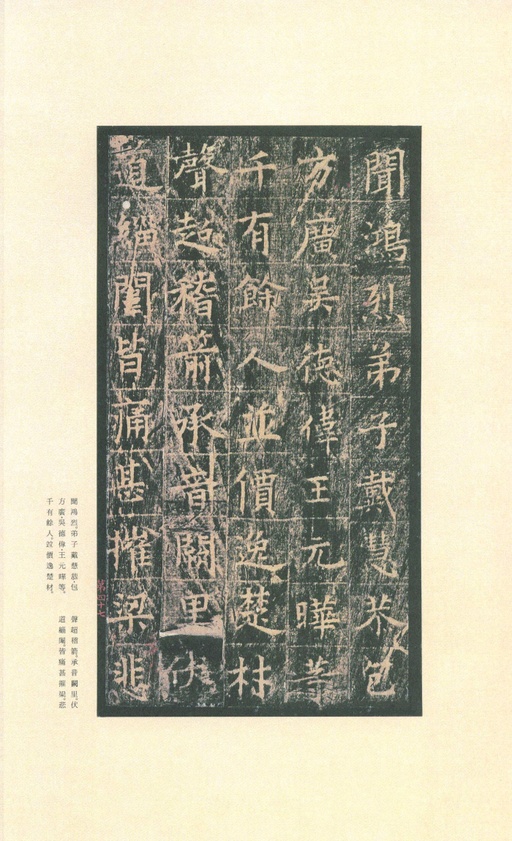 聞鴻烈弟子戴慧恭包
方廣吳德偉王元曄等
千有餘人並價逸楚材
聲超稽箭承音闕里伏
道緇闈皆痛甚摧梁悲
聞鴻烈。弟子戴慧恭、包
方廣、吳德偉、王元曄等。
千有餘人。並價逸楚材。
聲超稽箭。承音闕里。伏
道緇闈。皆痛甚摧梁。悲